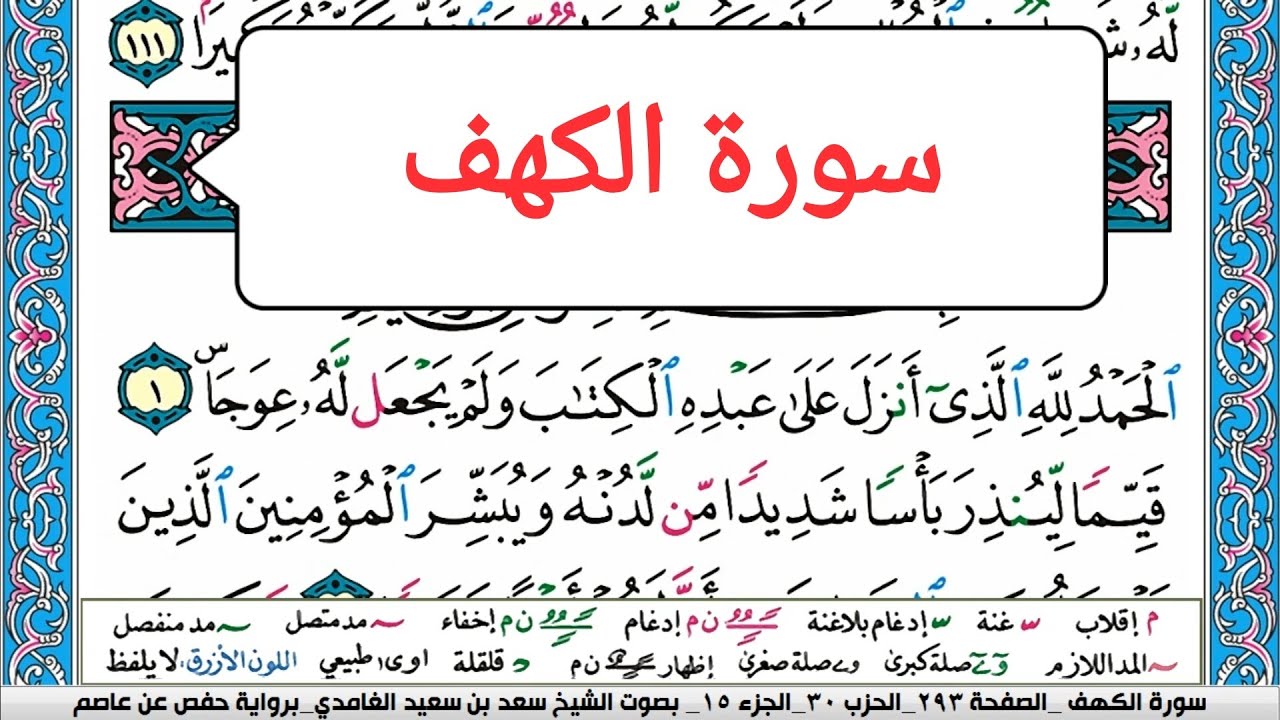 لَّهُۥ
كَبِيرًا ١١١
سورة الكهف
ٱلۡحَمۡدُ لِلَّهِ ٱلَّذِىٓ أَنزَلَ عَلَىٰ عَبۡدِهِ ٱلۡكِتَٰبَ وَلَمۡ يَجۡعَل لَّهُۥ عِوَجَاۜ ١
قَيِّمًا لِّيُنذِرَ بَأۡسًا شَدِيدًا مِّن لَّدُنۡهُ وَيُبَشِّرَ ٱلۡمُؤۡمِنِينَ ٱلَّذِينَ
م إقلاب غنة إدغام بلا غنة ن م إدغام ن م إخفاء مد متصل مد منفصل
المد اللازم صلة كبرى وے صلة صغرى إظهار ن م د قلقلة اوى ا طبيعي اللون الأزرق: لا يلفظ
سورة الكهف _الصفحة ٢٩٣_الحزب ٣٠_الجزء ١٥_ بصوت الشيخ سعد بن سعيد الغامدي_برواية حفص عن عاصم